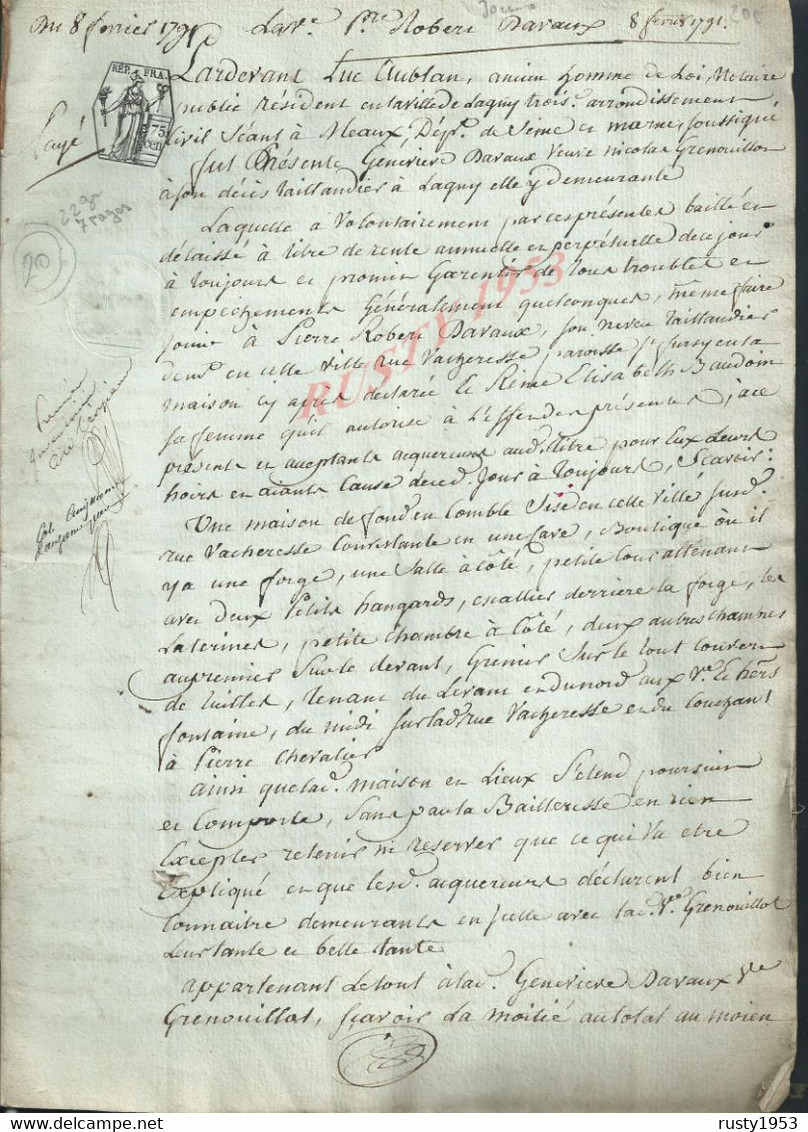 Du 8 fevrier 1791
Pre Robert Davaux
8 fevrier 1791.
20
REP. FRA.
75
cen
Payé
Pardevant Luc Aublan, ancien homme de Loi, Notaire
public résident en la ville de Lagny trois. arrondissement
Civil Séant à Meaux, Dépt. de Seine et marne, soussigné
fut Présente Genevieve Davaux veuve nicolas Grenouillot
à son décès taillandier à Lagny elle y demeurante
Laquelle a volontairement par ces présentes baillé et
délaissé à titre de rente annuelle et perpétuelle de ce jour
à toujours et promis garentir de tous troubles et
empéchements Généralement quelconques, même faire
jouir à Pierre Robert Davaux, son neveu taillandier
demt. en cette ville rue Vacheresse, paroisse St. fursy en la
maison cy après déclarée et Reine Elisabeth Baudoin
sa femme qu'il autorise à l'effet des présentes, à ce
présents et acceptants acquereurs aud. titre pour Eux Leurs
hoirs et aiants Cause de ce d. Jour à Toujours, Scavoir:
Une maison de fond en Comble Sise en cette ville susd.
rue Vacheresse Consistante en une Cave, Boutique où il
y a une forge, une Salle à côté, petite Cour attenant
avec deux Petits hangards, escallier derriere la forge, les
Laterines, petite Chambre à Côté, deux autres chambres
au premier Sur le devant, Grenier Sur le tout couvert
de tuilles, tenant du Levant et du nord aux Ve. Et hérs
fontaine, du midi sur lad. rue Vacheresse et du Couchant
à Pierre Chevalier
ainsi que lad. maison et Lieux S'étend poursuit
et Comporte, Sans par la Bailleresse en rien
Excepter retenir ni reserver que ce qui Va etre
Expliqué et que lesd. acquereurs déclarent bien
Connaitre demeurants en icelle avec lad. Ve. Grenouillot
leur tante et belle tante
appartenant Le tout à lad. Genevieve Davaux Ve
Grenouillot, Sçavoir La moitié au total au moien
RUSTY 1953
rusty1953